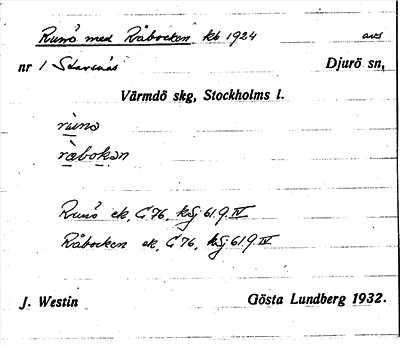 Runö med Råbocken kb 1924 avs
nr 1 Stavsnäs Djurö sn,
Värmdö skg, Stockholms l.
rùnö
ràbokən
Runö ek, C. 76, ksj. 61.9. IV
Råbocken ek, C 76, ksj 61.9 IV
J. Westin Gösta Lundberg 1932.